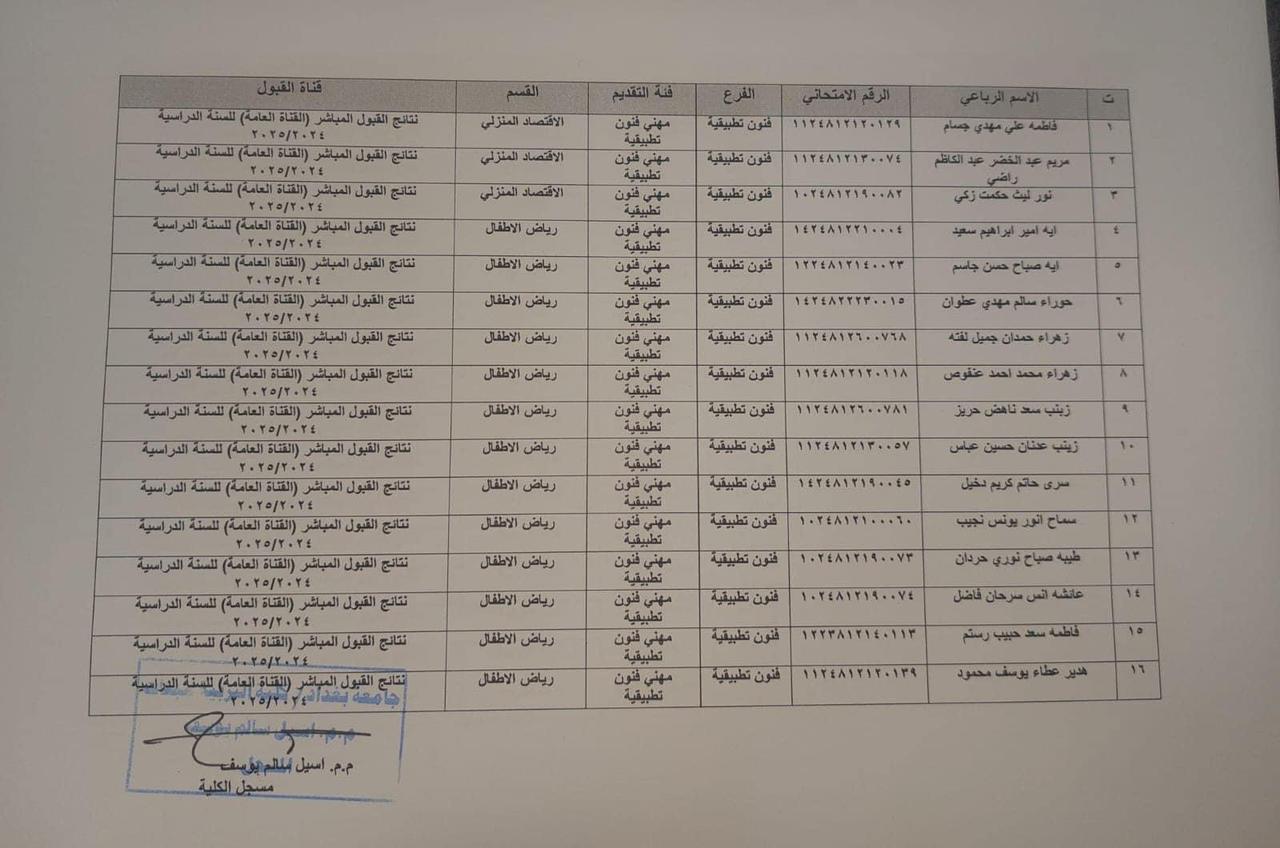 ت الاسم الرباعي الرقم الامتحاني الفرع فئة التقديم القسم قناة القبول
١ فاطمه علي مهدي جسام ١١٢٤٨١٢١٢٠١٢٩ فنون تطبيقية مهني فنون تطبيقية الاقتصاد المنزلي نتائج القبول المباشر (القناة العامة) للسنة الدراسية ٢٠٢٥/٢٠٢٤
٢ مريم عبد الخضر عبد الكاظم راضي ١١٢٤٨١٢١٣٠٠٧٤ فنون تطبيقية مهني فنون تطبيقية الاقتصاد المنزلي نتائج القبول المباشر (القناة العامة) للسنة الدراسية ٢٠٢٥/٢٠٢٤
٣ نور ليث حكمت زكي ١٠٢٤٨١٢١٩٠٠٨٢ فنون تطبيقية مهني فنون تطبيقية الاقتصاد المنزلي نتائج القبول المباشر (القناة العامة) للسنة الدراسية ٢٠٢٥/٢٠٢٤
٤ ايه امير ابراهيم سعيد ١٤٢٤٨١٢٢١٠٠٠٤ فنون تطبيقية مهني فنون تطبيقية رياض الاطفال نتائج القبول المباشر (القناة العامة) للسنة الدراسية ٢٠٢٥/٢٠٢٤
٥ ايه صباح حسن جاسم ١٢٢٤٨١٢١٤٠٠٢٣ فنون تطبيقية مهني فنون تطبيقية رياض الاطفال نتائج القبول المباشر (القناة العامة) للسنة الدراسية ٢٠٢٥/٢٠٢٤
٦ حوراء سالم مهدي عطوان ١٤٢٤٨٢٢٢٣٠٠١٥ فنون تطبيقية مهني فنون تطبيقية رياض الاطفال نتائج القبول المباشر (القناة العامة) للسنة الدراسية ٢٠٢٥/٢٠٢٤
٧ زهراء حمدان جميل لفته ١١٢٤٨١٢٦٠٠٧٦٨ فنون تطبيقية مهني فنون تطبيقية رياض الاطفال نتائج القبول المباشر (القناة العامة) للسنة الدراسية ٢٠٢٥/٢٠٢٤
٨ زهراء محمد احمد عنفوص ١١٢٤٨١٢١٢٠١١٨ فنون تطبيقية مهني فنون تطبيقية رياض الاطفال نتائج القبول المباشر (القناة العامة) للسنة الدراسية ٢٠٢٥/٢٠٢٤
٩ زينب سعد ناهض حريز ١١٢٤٨١٢٦٠٠٧٨١ فنون تطبيقية مهني فنون تطبيقية رياض الاطفال نتائج القبول المباشر (القناة العامة) للسنة الدراسية ٢٠٢٥/٢٠٢٤
١٠ زينب عدنان حسين عباس ١١٢٤٨١٢١٣٠٠٥٧ فنون تطبيقية مهني فنون تطبيقية رياض الاطفال نتائج القبول المباشر (القناة العامة) للسنة الدراسية ٢٠٢٥/٢٠٢٤
١١ سرى حاتم كريم دخيل ١٤٢٤٨١٢١٩٠٠٤٥ فنون تطبيقية مهني فنون تطبيقية رياض الاطفال نتائج القبول المباشر (القناة العامة) للسنة الدراسية ٢٠٢٥/٢٠٢٤
١٢ سماح انور يونس نجيب ١٠٢٤٨١٢١٠٠٠٦٠ فنون تطبيقية مهني فنون تطبيقية رياض الاطفال نتائج القبول المباشر (القناة العامة) للسنة الدراسية ٢٠٢٥/٢٠٢٤
١٣ طيبه صباح نوري حردان ١٠٢٤٨١٢١٩٠٠٧٣ فنون تطبيقية مهني فنون تطبيقية رياض الاطفال نتائج القبول المباشر (القناة العامة) للسنة الدراسية ٢٠٢٥/٢٠٢٤
١٤ عائشه انس سرحان فاضل ١٠٢٤٨١٢١٩٠٠٧٤ فنون تطبيقية مهني فنون تطبيقية رياض الاطفال نتائج القبول المباشر (القناة العامة) للسنة الدراسية ٢٠٢٥/٢٠٢٤
١٥ فاطمه سعد حبيب رستم ١٢٢٣٨١٢١٤٠١١٣ فنون تطبيقية مهني فنون تطبيقية رياض الاطفال نتائج القبول المباشر (القناة العامة) للسنة الدراسية ٢٠٢٥/٢٠٢٤
١٦ هدير عطاء يوسف محمود ١١٢٤٨١٢١٢٠١٣٩ فنون تطبيقية مهني فنون تطبيقية رياض الاطفال نتائج القبول المباشر (القناة العامة) للسنة الدراسية ٢٠٢٥/٢٠٢٤
جامعة بغداد / كلية التربية
م.م. اسيل سالم يوسف
م.م. اسيل سالم يوسف
مسجل الكلية